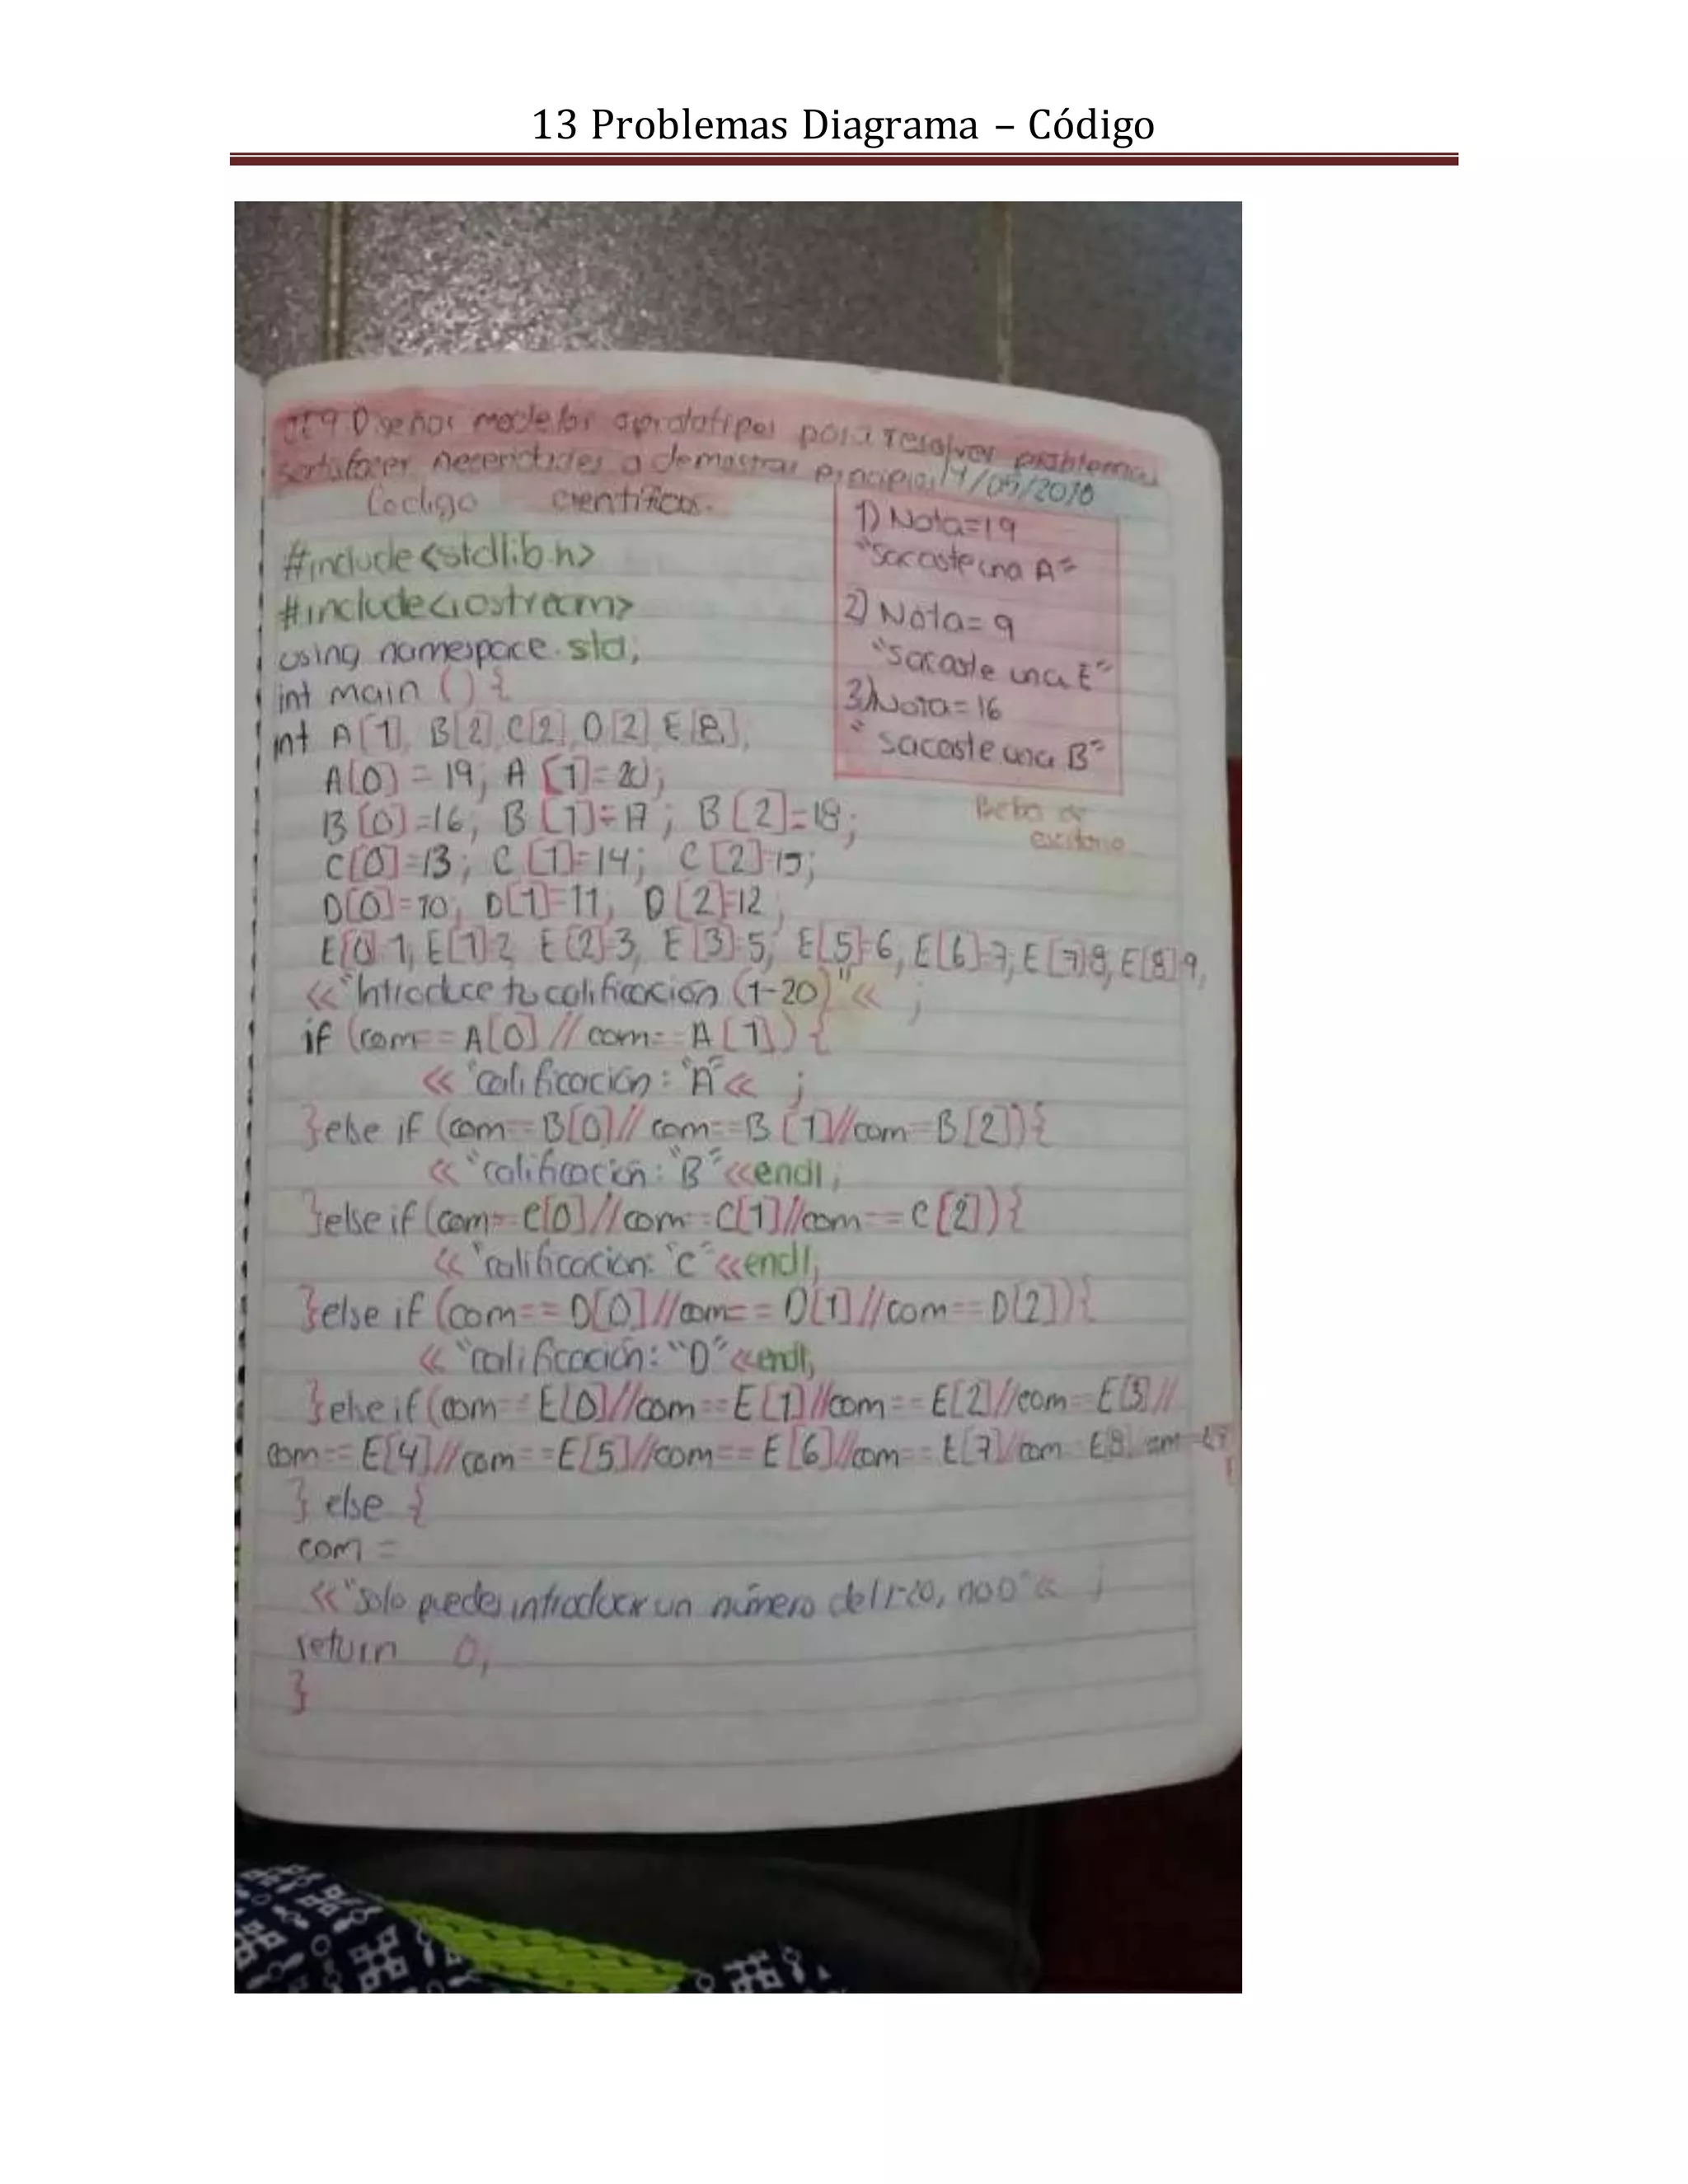 13 Problemas Diagrama – Código
Diseñar modelos o prototipos para resolver problemas
satisfacer necesidades o demostrar principios 14/05/2018
Codigo científicos.
1) Nota=19
"Sacaste una A"
2) Nota=9
"Sacaste una E"
3) Nota=16
"sacaste una B"
escritorio
#include <stdlib.h>
#include<iostream>
using namespace std;
int main () {
int A[1], B[2], C[2], D[2], E[8];
A[0] = 19; A [1]=20;
B[0]=16; B[1]=17; B[2]=18;
C[0]=13; C[1]=14; C[2]=15;
D[0]=10; D[1]=11; D[2]=12;
E[0]=1, E[1]=2, E[2]=3, E[3]=5, E[5]=6, E[6]=7, E[7]=8, E[8]=9,
<<"Introduce tu calificación (1-20)"<< ;
if (com== A[0] // com== A[1]) {
<<"calificación: "A"<< ;
}else if (com==B[0]// com==B[1]//com==B[2]){
<<"calificación: "B"<<endl;
}else if (com==C[0]//com==C[1]//com==C[2]){
<<"calificacion: "C"<<endl;
}else if (com==D[0]//com==D[1]//com==D[2]){
<<"calificación: "D"<<endl;
}else if (com==E[0]//com==E[1]//com==E[2]//com==E[3]//
com==E[4]//com==E[5]//com==E[6]//com==E[7]//com E8
} else {
com =
<<"Solo puedes introducir un número del 1-20, no 0"<< ;
return 0;
}